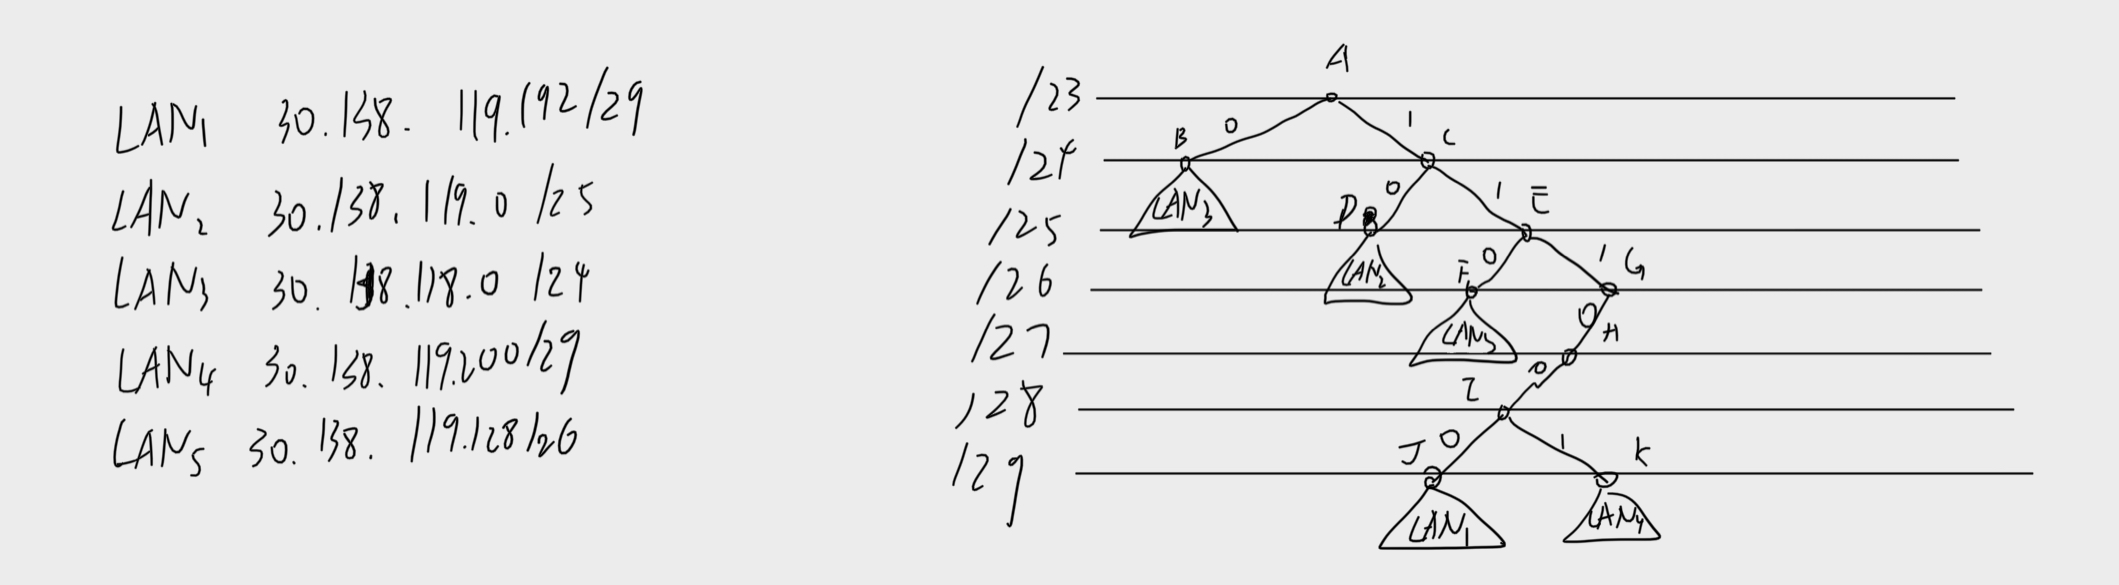 LAN1 30.138. 119.192/29
LAN2 30.138.119.0 /25
LAN3 30.138.118.0 /24
LAN4 30.138. 119.200/29
LAN5 30.138. 119.128/26
A
/23
0 1
B C
/24
LAN3 0 1 E
D
/25
LAN2 0 1 G
F
/26
LAN5 0 H
/27
0
I
/28
J 0 1 K
/29
LAN1 LAN4